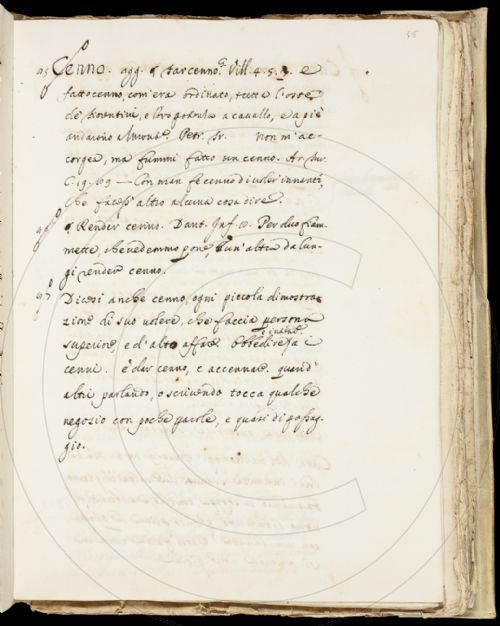 36
95 Cenno. agg. ¶ far cenno. Vill. 4. 5. 3. e
fatto cenno, com'era ordinato, tutta l'oste
de' fiorentini, e loro potenza a cavallo, e a piè
andarono Petr. Non m'ac-
corgea, ma fummi fatto un cenno. Ar. fur.
C. 19. 109 — Con man fe cenno di voler innanti,
che facess' altro alcuna cosa dire.
96 ¶ Render cenno. Dant. Inf. 8. Per duo fiam-
mette, che vedemmo porre, E un'altra da lun-
gi render cenno.
97 Dicesi anche cenno, ogni piccola dimostra-
zione di suo volere, che faccia persona
superiore, e d'alto affare. Obbedire a i
cenni. è dar cenno, e accennare quand'
altri parlando, o scrivendo tocca qualche
negozio con poche parole, e quasi di passag-
gio.